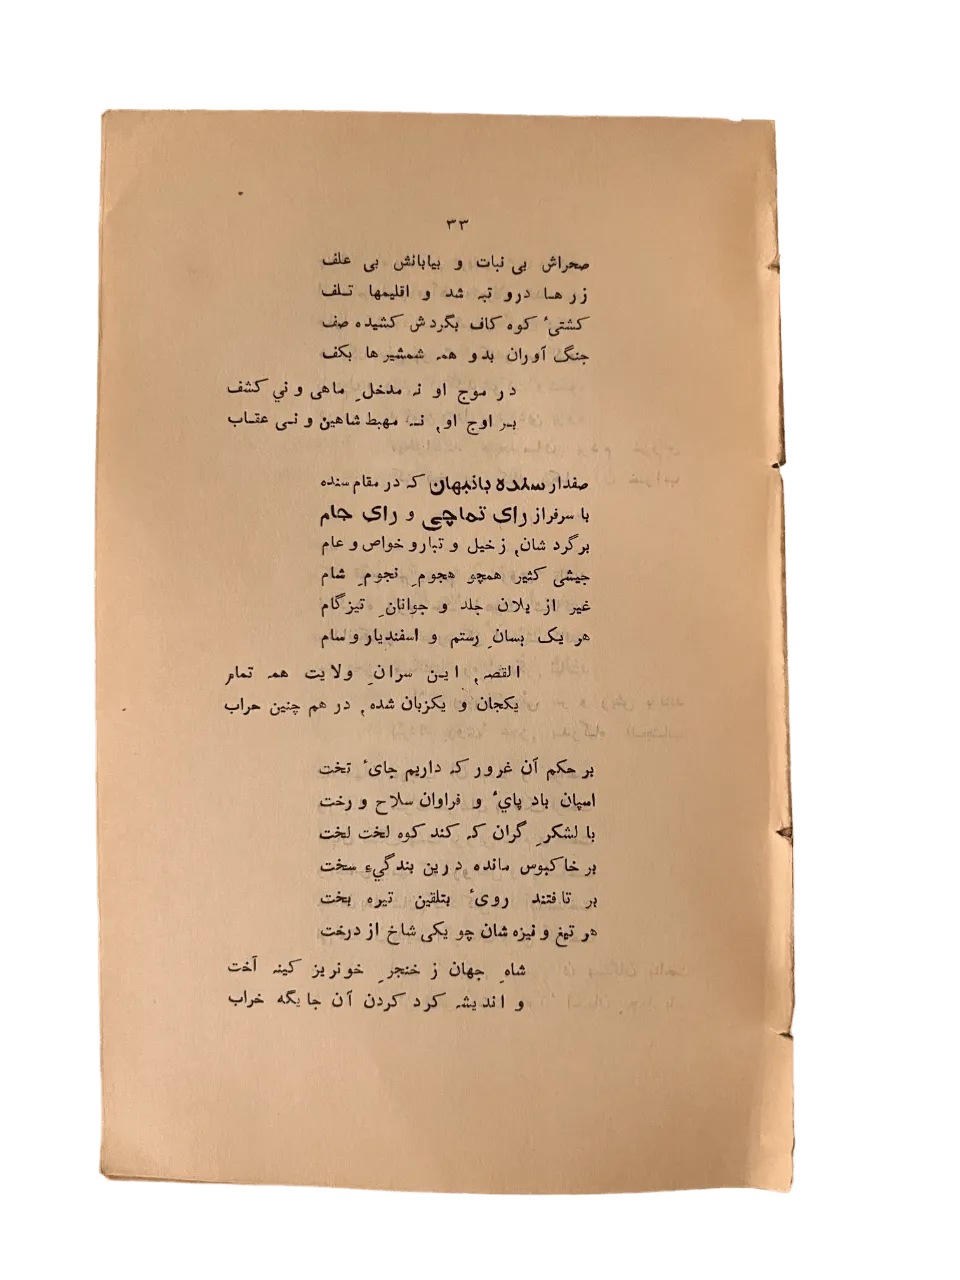 ۳۳
صحراش بی نبات و بیابانش بی علف
زرها درو تبه شد و اقلیمها تلف
کشتیٔ کوه کاف بگردش کشیده صف
جنگ آوران بدو همه شمشیرها بکف
در موج او نه مدخلِ ماهی و ني کشف
بر اوج او, نه مهبط شاهین و نی عقاب
صفدار سنده بانبهان که در مقام سنده
با سرفراز رای تماچي و رای جام
برگرد شان, زخیل و تبار و خواص و عام
جیشی کثیر همچو هجومِ نجومِ شام
غیر از یلان جلد و جوانانِ تیزگام
هر یک بسانِ رستم و اسفندیار و سام
القصه, این سرانِ ولایت همه تمام
یکجان و یکزبان شده, در هم چنین حراب
بر حکم آن غرور که داریم جایٔ تخت
اسپان باد پائ و فراوان سلاح و رخت
با لشکرِ گران که کند کوه لخت لخت
بر خاکبوس مانده درین بندگيء سخت
بر تافتند رویٔ بتلقین تیره بخت
هر تیغ و نیزه شان چو یکی شاخ از درخت
شاهِ جهان ز خنجرِ خونریز کینه آخت
و اندیشه کرد کردن آن جایگه خراب